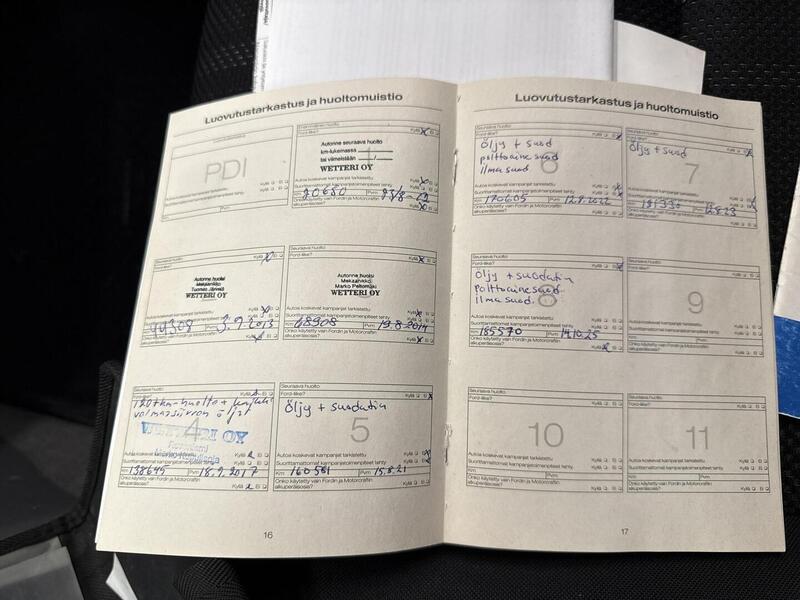 Luovutustarkastus ja huoltomuistio
PDI
Autoa koskevat kampanjat tarkistettu
Kyllä Ei
Km
Pvm
Ford-liike?
Kyllä x Ei
Autonne seuraava huolto
km-lukemassa
tai viimeistään
WETTERI OY
1
Autoa koskevat kampanjat tarkistettu
Suorittamattomat kampanjatoimenpiteet tehty
Km 20680 Pvm 23/8-12
Onko käytetty vain Fordin ja Motorcraftin alkuperäisosia?
Kyllä x Ei
Seuraava huolto
Ford-liike?
Kyllä x Ei
Autonne huolsi
Mekaanikko
Tuomas Järvinä
WETTERI OY
44308 Pvm 3.9.2013
Seuraava huolto
Ford-liike?
Kyllä x Ei
Autonne huolsi
Mekaanikko
Marko Peltomaa
WETTERI OY
Autoa koskevat kampanjat tarkistettu
Suorittamattomat kampanjatoimenpiteet tehty
68908 Pvm 19.8.2014
Onko käytetty vain Fordin ja Motorcraftin alkuperäisosia?
Kyllä x Ei
Seuraava huolto
Ford-liike?
120tkm-huolto +
4
WETTERI OY
Autoa koskevat kampanjat tarkistettu
Suorittamattomat kampanjatoimenpiteet tehty
Km 138645 Pvm 18.9.2017
Onko käytetty vain Fordin ja Motorcraftin
alkuperäisosia?
Kyllä x Ei
Seuraava huolto
Ford-liike?
Kyllä x Ei
öljy + suodatin
5
Autoa koskevat kampanjat tarkistettu
Suorittamattomat kampanjatoimenpiteet tehty
Km 160561 Pvm 15.8.21
Onko käytetty vain Fordin ja Motorcraftin
alkuperäisosia?
Kyllä Ei
16
Luovutustarkastus ja huoltomuistio
Seuraava huolto
Ford-liike?
Kyllä x Ei
öljy + suod
polttoaine suod
ilma suod
6
Autoa koskevat kampanjat tarkistettu
Suorittamattomat kampanjatoimenpiteet tehty
Km 170605 Pvm 12.8.2022
Onko käytetty vain Fordin ja Motorcraftin
alkuperäisosia?
Kyllä Ei
Seuraava huolto
Ford-liike?
Kyllä x Ei
öljy + suod
7
Autoa koskevat kampanjat tarkistettu
Suorittamattomat kampanjatoimenpiteet tehty
Onko käytetty vain Fordin ja Motorcraftin
alkuperäisosia?
Kyllä Ei
Seuraava huolto
Ford-liike?
Kyllä x Ei
öljy + suodatin
polttoainesuod.
ilma suod.
8
Autoa koskevat kampanjat tarkistettu
Suorittamattomat kampanjatoimenpiteet tehty
Km 185570 Pvm 14.10.25
Onko käytetty vain Fordin ja Motorcraftin
alkuperäisosia?
Kyllä x Ei
Seuraava huolto
Ford-liike?
Kyllä Ei
9
Autoa koskevat kampanjat tarkistettu
Suorittamattomat kampanjatoimenpiteet tehty
Km Pvm
Onko käytetty vain Fordin ja Motorcraftin
alkuperäisosia?
Kyllä Ei
Seuraava huolto
Ford-liike?
Kyllä Ei
10
Autoa koskevat kampanjat tarkistettu
Suorittamattomat kampanjatoimenpiteet tehty
Km Pvm
Onko käytetty vain Fordin ja Motorcraftin
alkuperäisosia?
Kyllä Ei
Seuraava huolto
Ford-liike?
Kyllä Ei
11
Autoa koskevat kampanjat tarkistettu
Suorittamattomat kampanjatoimenpiteet tehty
Km Pvm
Onko käytetty vain Fordin ja Motorcraftin
alkuperäisosia?
Kyllä Ei
17